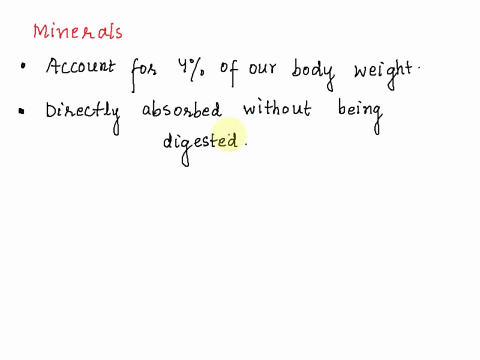 Minerals
• Account for 4% of our body weight.
• Directly absorbed without being
digested.